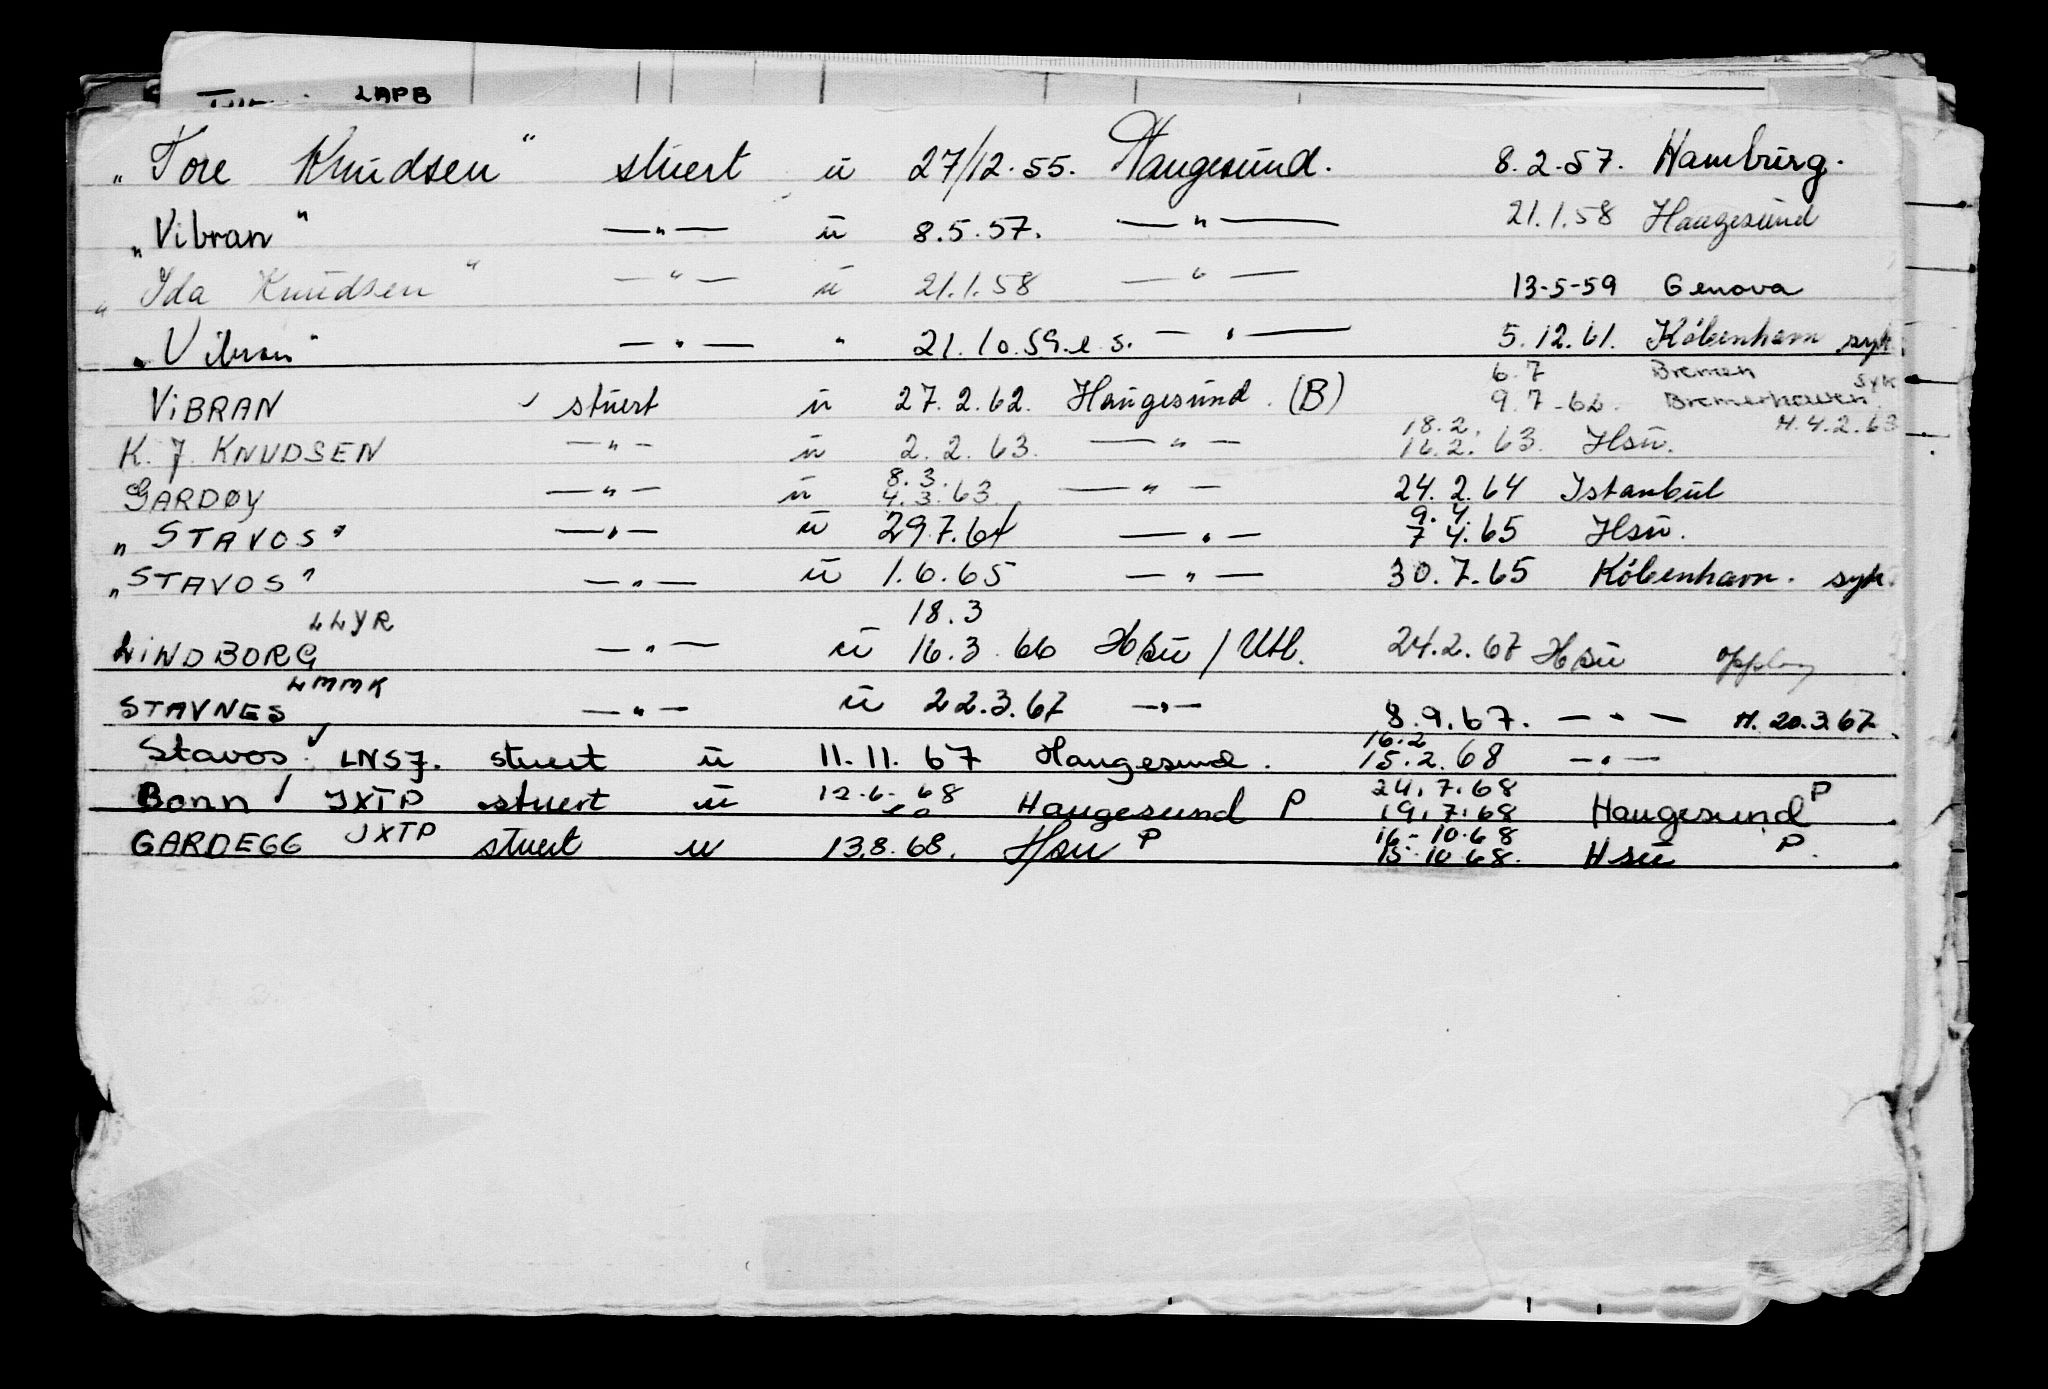 LAPB
„Tore Knudsen" stuert u 27/12.55. Haugesund. 8.2.57. Hamburg.
„Vibran" —"— u 8.5.57. —"— 21.1.58 Haugesund
„Ida Knudsen" —"— u 21.1.58 —"— 13-5-59 Genova
„Vibran" —"— " 21.10.59. e.s. —"— 5.12.61. København syk.
6.7 Bremen
VIBRAN stuert u 27.2.62. Haugesund. (B) 9.7-62. Bremerhaven syk
18.2. M. 4.2.63
K. J. KNUDSEN —"— u 2.2.63. —"— 16.2.63. Hsu.
8.3.
GARDØY —"— u 4.3.63 —"— 24.2.64 Istanbul
9.4.
„STAVOS" —"— u 29.7.64 —"— 7.4.65 Hsu.
„STAVOS" —"— u 1.6.65 —"— 30.7.65 København. syk.
LLYR 18.3
LINDBORG —"— u 16.3.66 Hsu / Utl. 24.2.67 Hsu
LMMK
STAVNES —"— u 22.3.67 —"— 8.9.67. —"— M. 20.3.67
16.2
Stavos LNSJ. stuert u 11.11.67 Haugesund. 15.2.68 —"—
24.7.68
Bonn JXTP stuert u 12-6-68 Haugesund P 19.7.68 Haugesund P
16-10-68
GARDEGG JXTP stuert u 13.8.68. Hsu P 15-10-68. Hsu P.